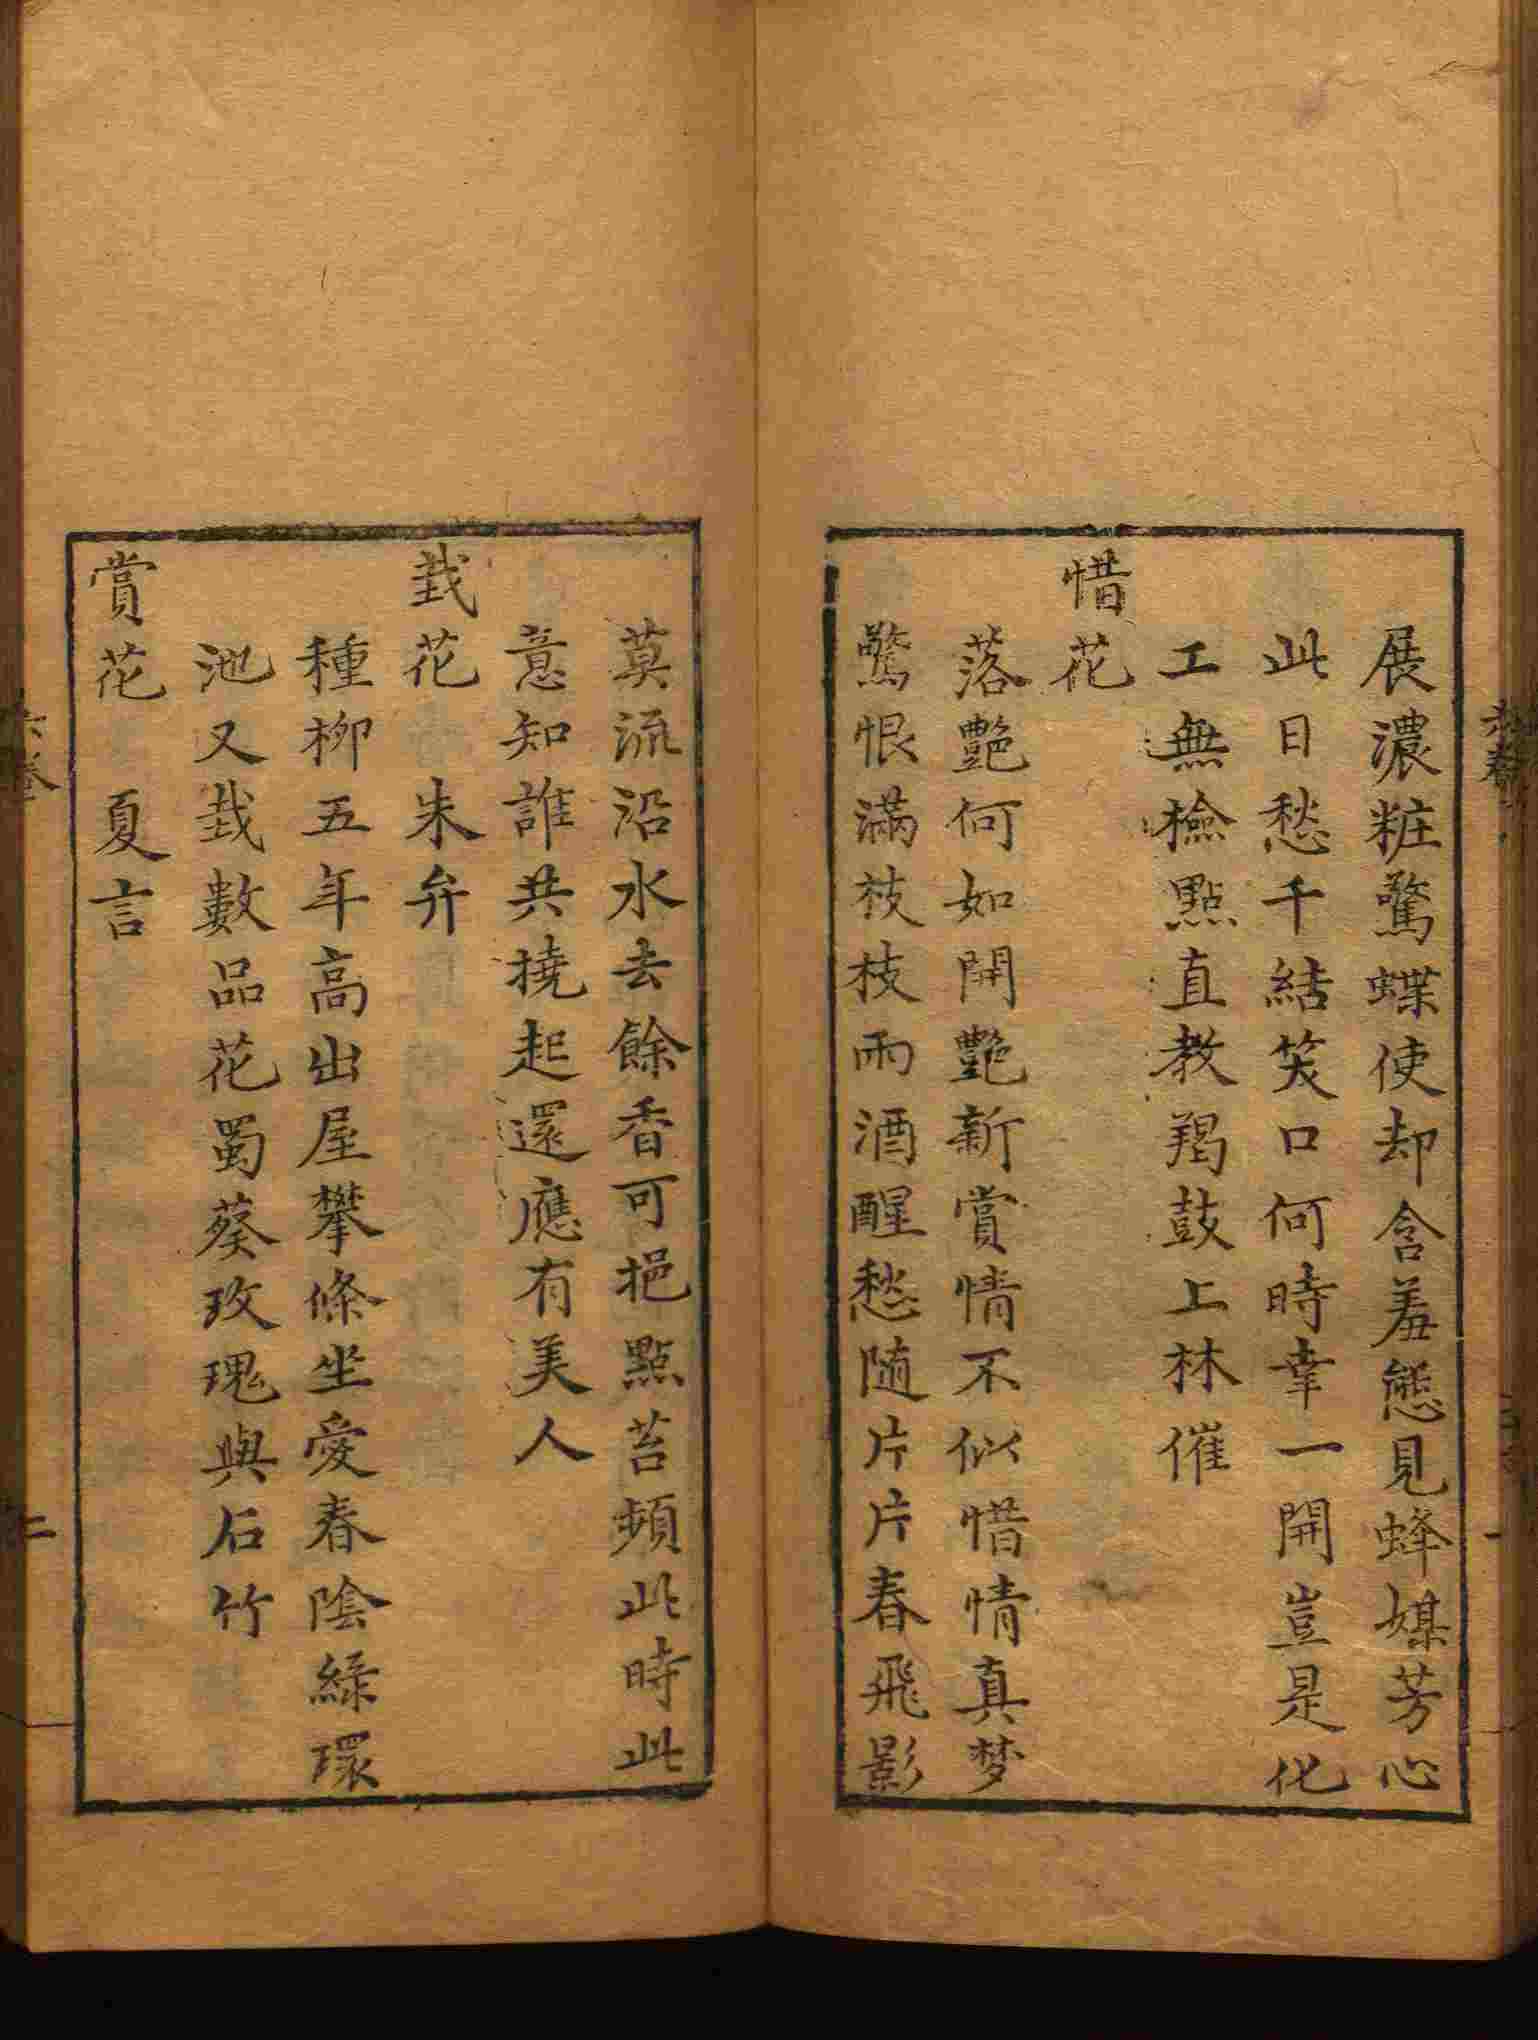 展濃粧驚蝶使却含羞態見蜂媒芳心
此日愁千結笑口何時幸一開豈是化
工無檢點直教羯鼓上林催
惜花
落艷何如開艷新賞情不似惜情真梦
驚恨滿枝枝雨酒醒愁隨片片春飛影
莫流沿水去餘香可挹點苔頻此時此
意知誰共撓起還應有美人
栽花　朱弁
種柳五年高出屋攀條坐愛春陰綠環
池又栽數品花蜀葵玫瑰與石竹
賞花　夏言
六卷
二